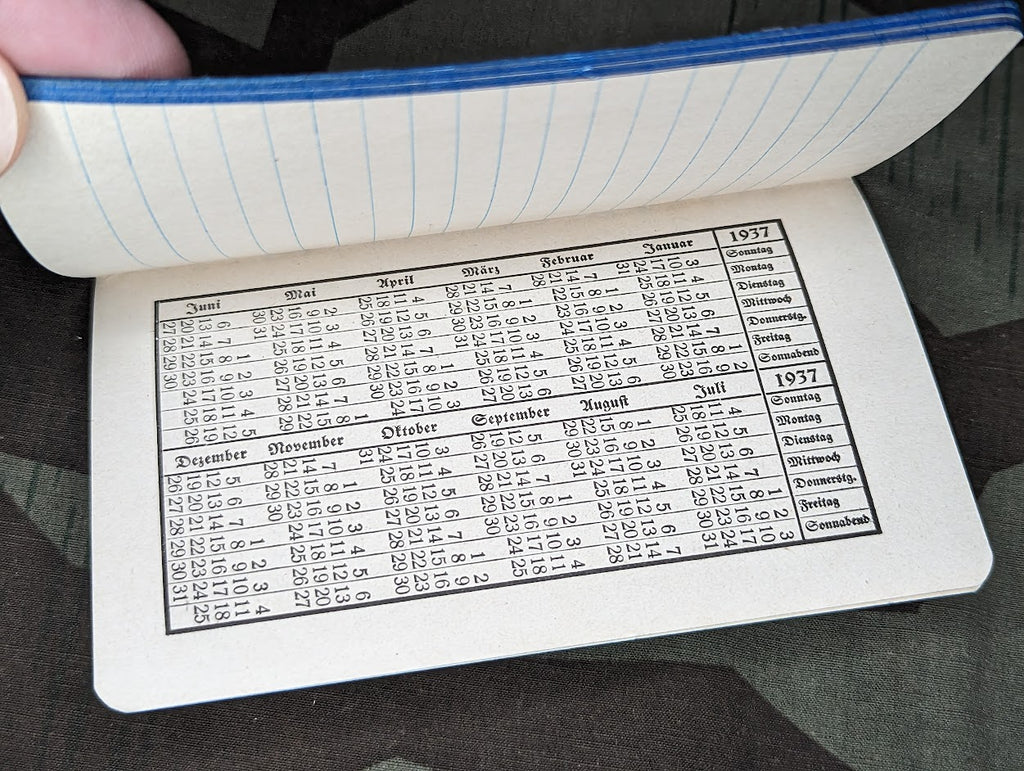 1937 Januar Februar März April Mai Juni
Sonntag 3 10 17 24 31 7 14 21 28 7 14 21 28 4 11 18 25 2 9 16 23 30 6 13 20 27
Montag 4 11 18 25 1 8 15 22 1 8 15 22 29 5 12 19 26 3 10 17 24 31 7 14 21 28
Dienstag 5 12 19 26 2 9 16 23 2 9 16 23 30 6 13 20 27 4 11 18 25 1 8 15 22 29
Mittwoch 6 13 20 27 3 10 17 24 3 10 17 24 31 7 14 21 28 5 12 19 26 2 9 16 23 30
Donnerstg. 7 14 21 28 4 11 18 25 4 11 18 25 1 8 15 22 29 6 13 20 27 3 10 17 24
Freitag 1 8 15 22 29 5 12 19 26 5 12 19 26 2 9 16 23 30 7 14 21 28 4 11 18 25
Sonnabend 2 9 16 23 30 6 13 20 27 6 13 20 27 3 10 17 24 1 8 15 22 29 5 12 19 26
1937 Juli August September Oktober November Dezember
Sonntag 4 11 18 25 1 8 15 22 29 5 12 19 26 3 10 17 24 31 7 14 21 28 5 12 19 26
Montag 5 12 19 26 2 9 16 23 30 6 13 20 27 4 11 18 25 1 8 15 22 29 6 13 20 27
Dienstag 6 13 20 27 3 10 17 24 31 7 14 21 28 5 12 19 26 2 9 16 23 30 7 14 21 28
Mittwoch 7 14 21 28 4 11 18 25 1 8 15 22 29 6 13 20 27 3 10 17 24 1 8 15 22 29
Donnerstg. 1 8 15 22 29 5 12 19 26 2 9 16 23 30 7 14 21 28 4 11 18 25 2 9 16 23 30
Freitag 2 9 16 23 30 6 13 20 27 3 10 17 24 1 8 15 22 29 5 12 19 26 3 10 17 24 31
Sonnabend 3 10 17 24 31 7 14 21 28 4 11 18 25 2 9 16 23 30 6 13 20 27 4 11 18 25